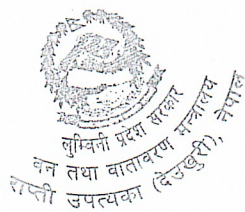 लुम्बिनी प्रदेश सरकार
वन तथा वातावरण मन्त्रालय
राप्ती उपत्यका (देउखुरी), नेपाल